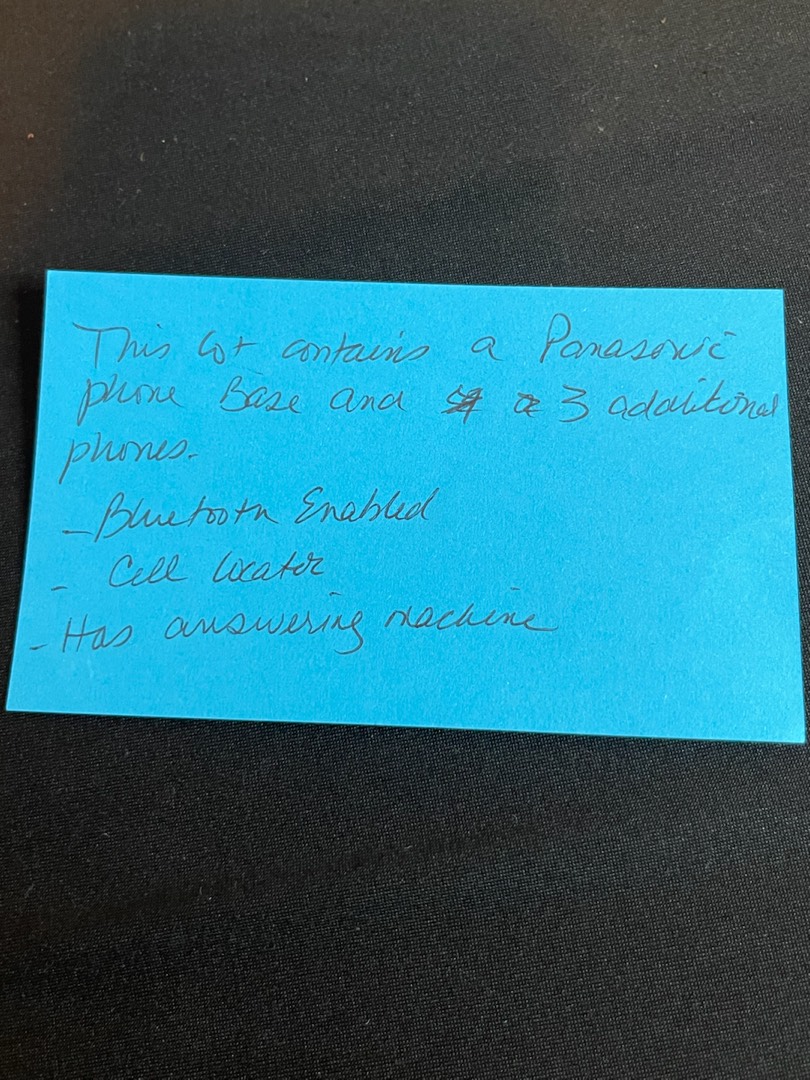 This lot contains a Panasonic
phone Base and 3 additional
phones.
- Bluetooth Enabled
- Cell locator
- Has answering machine